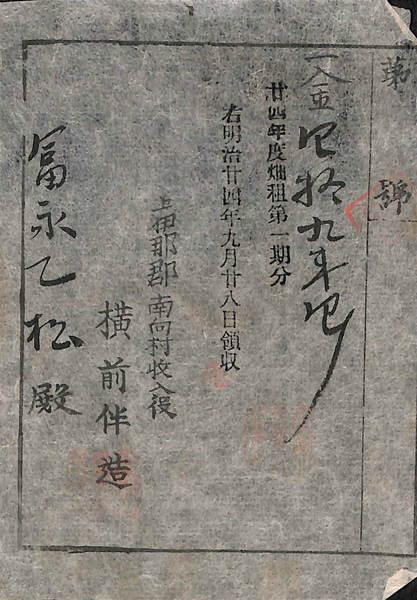 第　号
一金四拾九銭四
廿四年度畑租第一期分
右明治廿四年九月廿八日領収
上伊那郡南向村收入役
横前伴造
冨永乙松殿